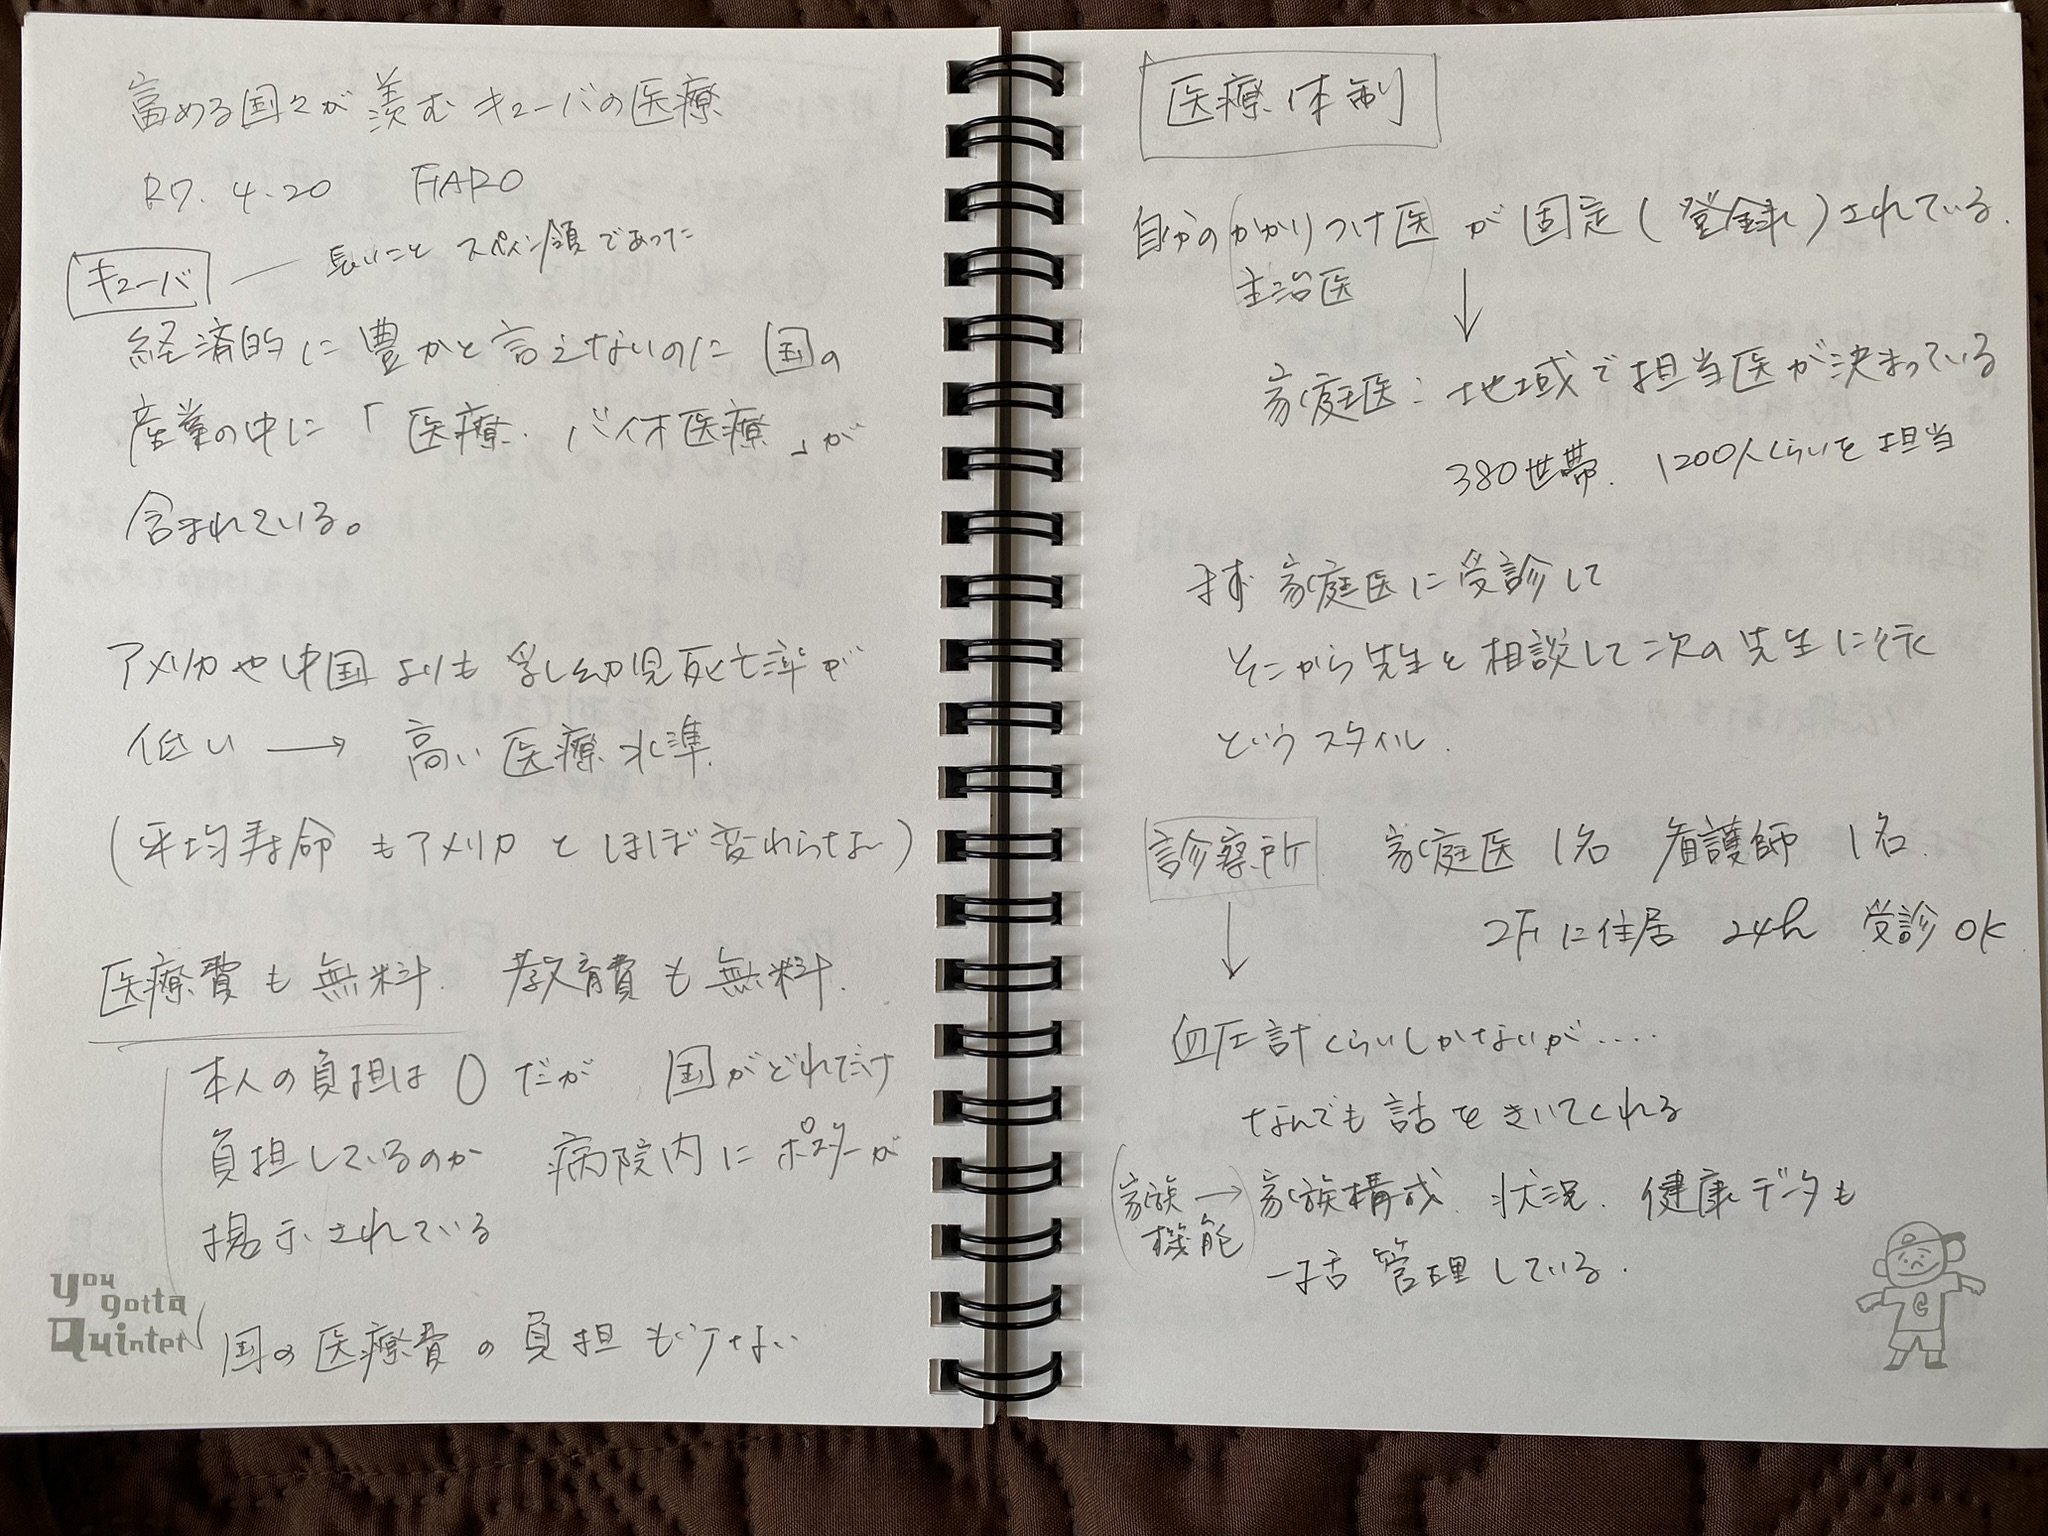 富める国々が羨むキューバの医療
R7.4.20 FARO
キューバ ― 長いこと スペイン領であった
経済的に豊かと言えないのに 国の
産業の中に「医療・バイオ医療」が
含まれている。
アメリカや中国よりも乳幼児死亡率が
低い → 高い医療水準
(平均寿命もアメリカとほぼ変わらない)
医療費も無料. 教育費も無料.
本人の負担は0だが 国がどれだけ
負担しているのか 病院内にポスターが
掲示されている
国の医療費の負担も少ない
you
gotta
Quintet
医療体制
自分の(かかりつけ医)が固定(登録)されている.
主治医 ↓
家庭医:地域で担当医が決まっている
380世帯. 1200人くらいを担当
まず 家庭医に受診して
そこから先生と相談して次の先生に行く
というスタイル.
診察所 家庭医1名 看護師1名.
↓ 2Fに住居 24h 受診OK
血圧計くらいしかないが....
なんでも話をきいてくれる
(家族機能)→家族構成. 状況. 健康データも
一括管理している.
G